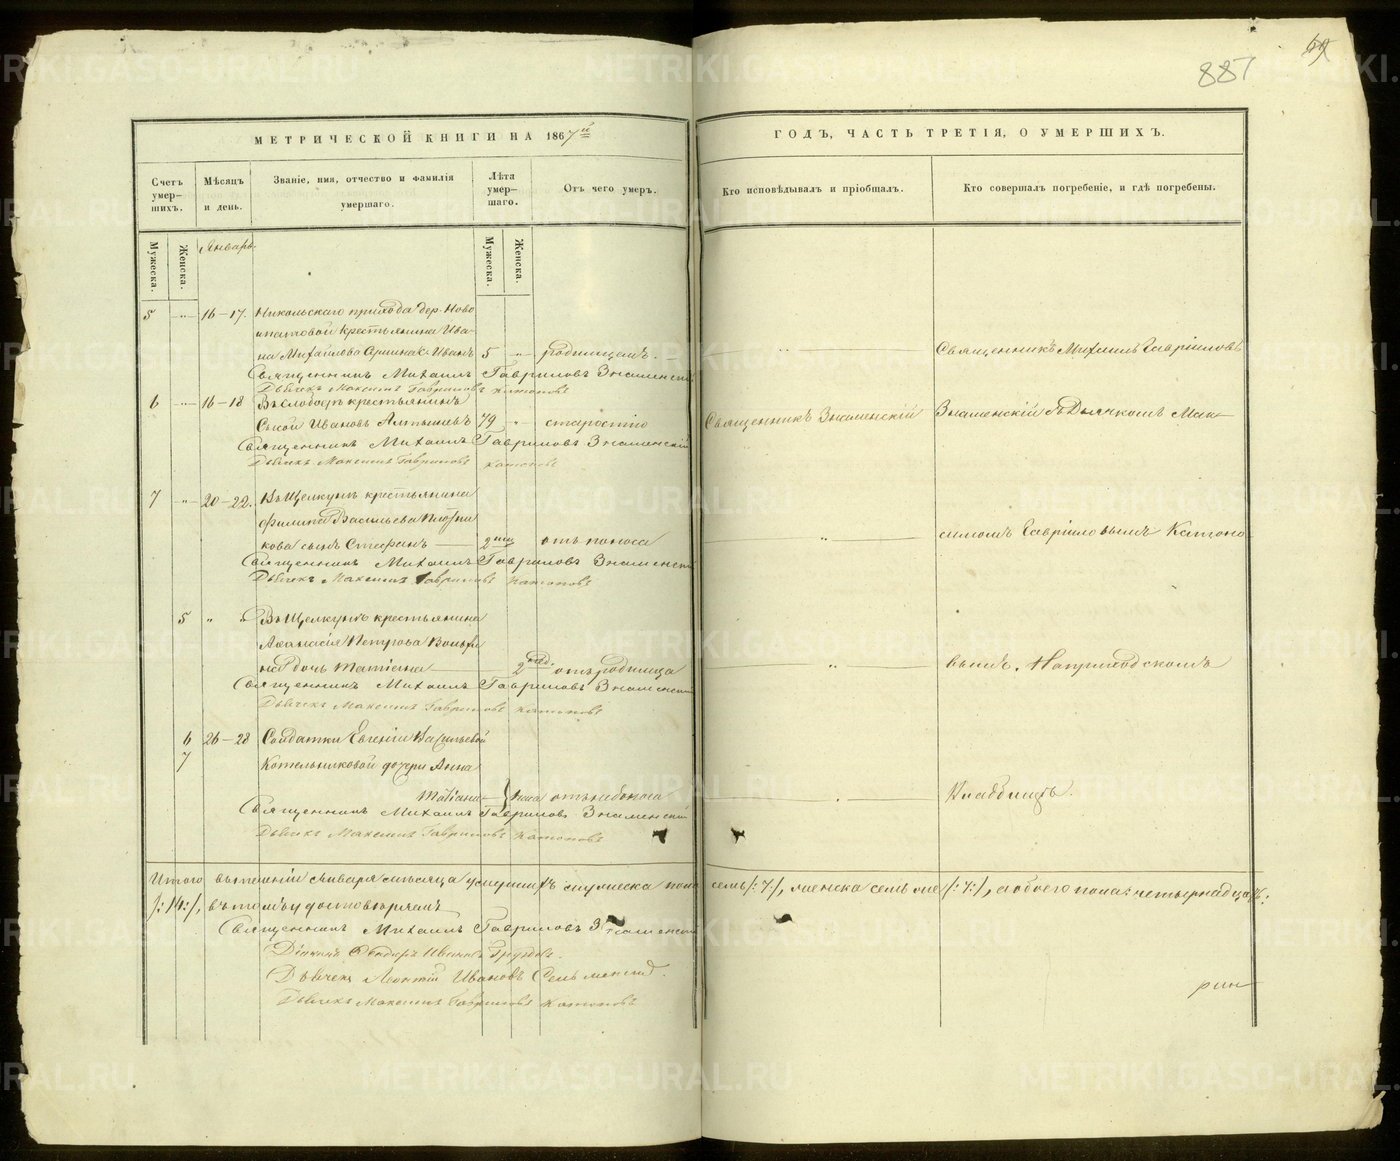 887
МЕТРИЧЕСКОЙ КНИГИ НА 1867й
ГОДЪ, ЧАСТЬ ТРЕТІЯ, О УМЕРШИХЪ.
Счетъ умер-
шихъ.
Мѣсяцъ
и день.
Званіе, имя, отчество и фамилія
умершаго.
Лѣта
умер-
шаго.
Отъ чего умеръ.
Кто исповѣдывалъ и пріобщалъ.
Кто совершалъ погребеніе, и гдѣ погребены.
Мужеска.
Женска.
Январь.
Мужеска.
Женска.
5 " 16-17. Никольскаго прихода дер. Ново
крестьянина Ива-
на Михайлова Иванъ 5 " родимцемъ. Священникъ Михаилъ Гавріиловъ
Священникъ Михаилъ Гавриловъ Знаменскій
Дьячекъ Максимъ Гавриловъ Катоновъ
6 " 16-18 Въ Слободѣ крестьянинъ
Сысой Ивановъ Алтышевъ 79 " старостію Священникъ Знаменскій Знаменскій съ Дьячкомъ Мак-
Священникъ Михаилъ Гавриловъ Знаменскій
Дьячекъ Максимъ Гавриловъ Катоновъ
7 " 20-22. Въ Щелкунѣ крестьянина
Филипа Васильева Плотни
кова сынъ Стефанъ 2 отъ поноса " симомъ Гавріиловымъ Катоно
Священникъ Михаилъ Гавриловъ Знаменскій
Дьячекъ Максимъ Гавриловъ Катоновъ
5 " Въ Щелкунѣ крестьянина
Афанасія Петрова
на дочь Татіана 2 нед. отъ родимца " вымъ. На приходскомъ
Священникъ Михаилъ Гавриловъ Знаменскій
Дьячекъ Максимъ Гавриловъ Катоновъ
6 26-28 Солдатки Евгеніи Васильевой
7 Котельниковой дочери Анна
Татіана отъ Кладбищѣ.
Священникъ Михаилъ Гавриловъ Знаменскій
Дьячекъ Максимъ Гавриловъ Катоновъ
Итого въ теченіи Января мѣсяца умершихъ мужеска пола семь /:7:/, женска семь же /:7:/, а обоего пола четырнадцать:
/:14:/, въ томъ удостовѣряемъ
Священникъ Михаилъ Гавриловъ Знаменскій
Ивановъ
Дьячекъ Леонтій Ивановъ
Дьячекъ Максимъ Гавриловъ Катоновъ
METRIKI.GASO-URAL.RU